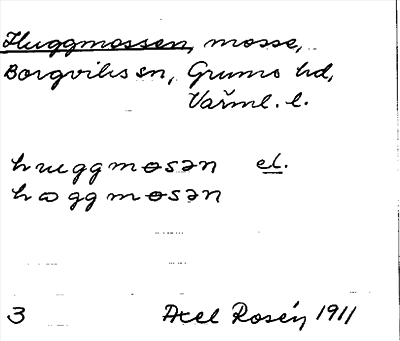 Huggmossen, mosse,
Borgviks sn, Grums hd,
Värml. l.
huggmɵsən el.
hɷggmɵsən
3 Axel Rosén, 1911